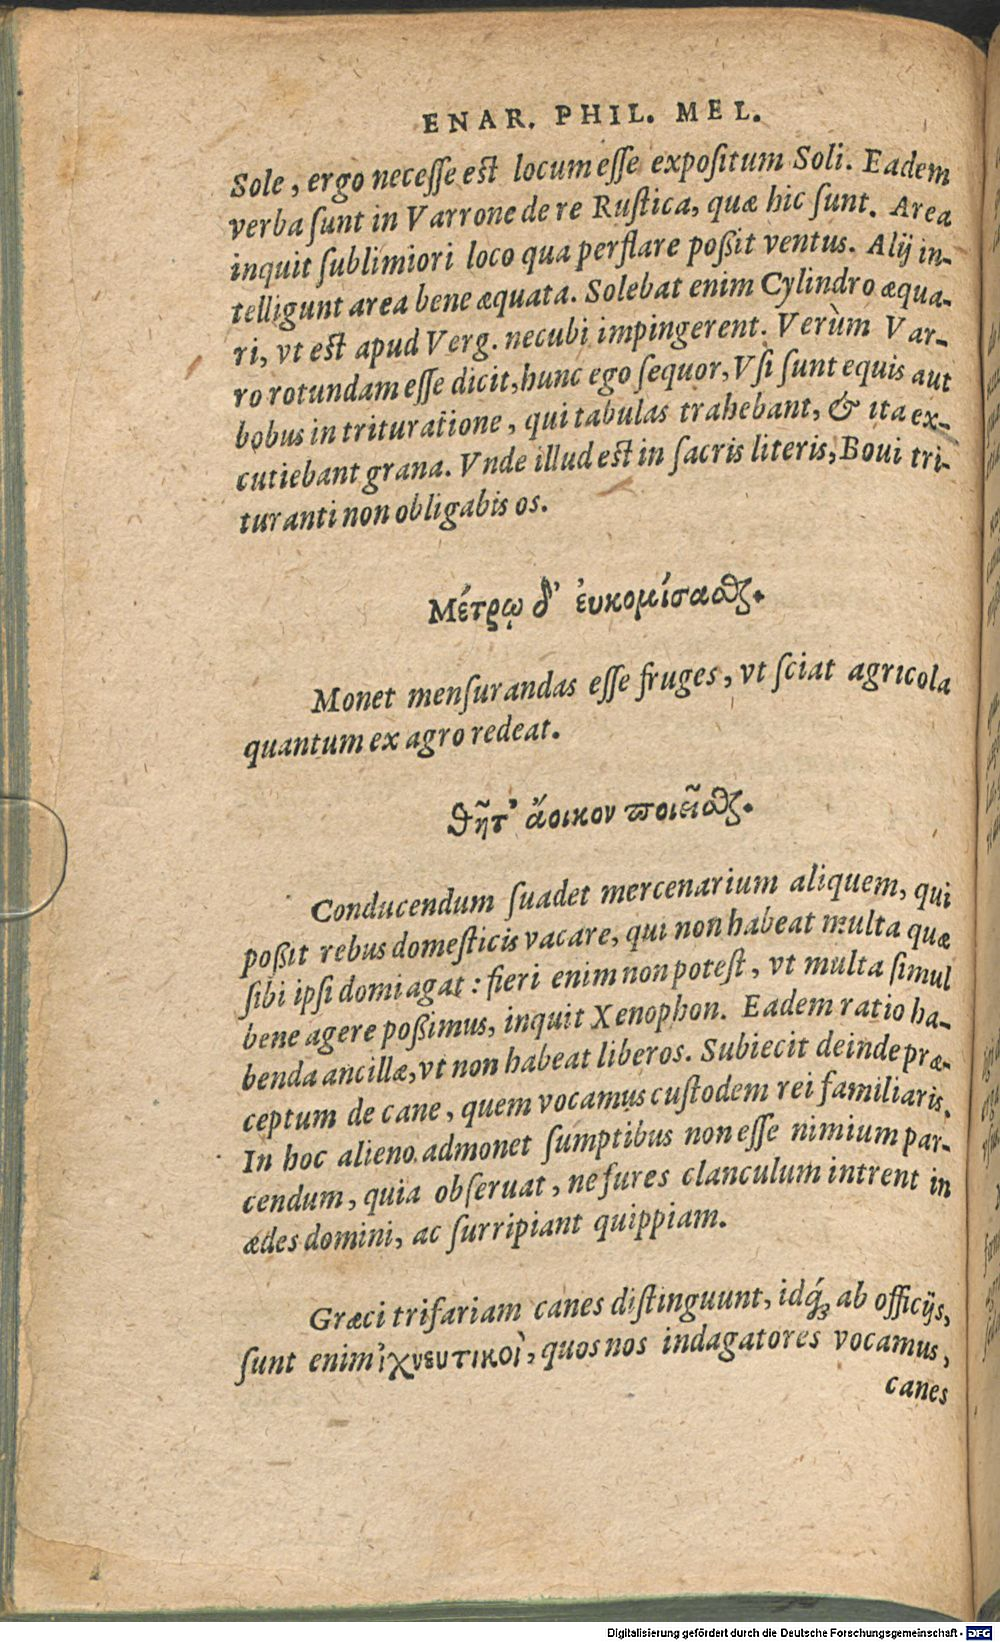 ENAR. PHIL. MEL.
Sole, ergo necesse est locum esse expositum Soli. Eadem
verba sunt in Varrone de re Rustica, quæ hic sunt. Area
inquit sublimiori loco qua perflare poßit ventus. Alij in-
telligunt area bene æquata. Solebat enim Cylindro æqua-
ri, vt est apud Verg. necubi impingerent. Verùm Var-
ro rotundam esse dicit, hunc ego sequor, Vsi sunt equis aut
bobus in trituratione, qui tabulas trahebant, & ita ex-
cutiebant grana. Vnde illud est in sacris literis, Boui tri-
turanti non obligabis os.
Μέτρῳ δ' ἐυκομίσασθαι.
Monet mensurandas esse fruges, vt sciat agricola
quantum ex agro redeat.
θῆτ' ἄοικον ποιεῖσθαι.
Conducendum suadet mercenarium aliquem, qui
poßit rebus domesticis vacare, qui non habeat multa quæ
sibi ipsi domi agat: fieri enim non potest, vt multa simul
bene agere poßimus, inquit Xenophon. Eadem ratio ha-
benda ancillæ, vt non habeat liberos. Subiecit deinde præ-
ceptum de cane, quem vocamus custodem rei familiaris.
In hoc alieno admonet sumptibus non esse nimium par-
cendum, quia obseruat, ne fures clanculum intrent in
ædes domini, ac surripiant quippiam.
Græci trifariam canes distinguunt, idq́ꝫ ab officijs,
sunt enim ἰχνευτικοὶ, quos nos indagatores vocamus,
canes
Digitalisierung gefördert durch die Deutsche Forschungsgemeinschaft - DFG